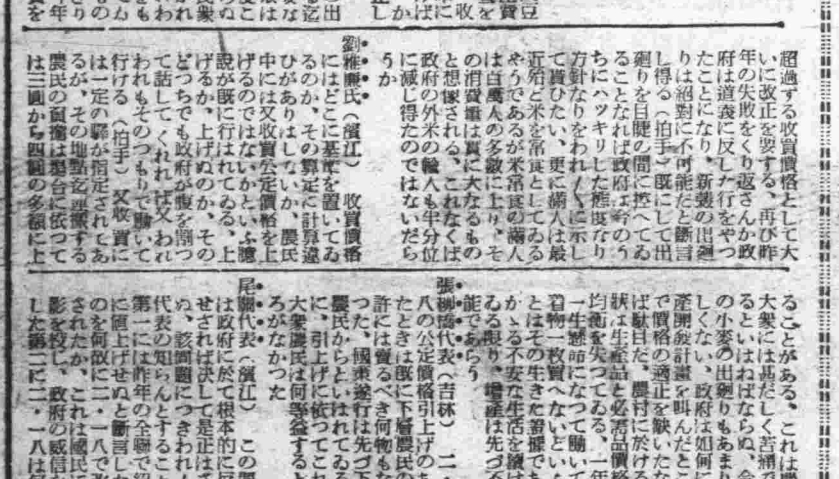 超過する收買價格として大
いに改正を要する、再び昨
年の失敗をくり返さんか政
府は道義に反した行をやつ
たことになり、新穀の出廻
りは絕對に不可能だと斷言
し得る（拍手）旣にして出
廻りを目睫の間に控へてゐ
ることなれば政府は今のう
ちにハツキリした態度なり
方針なりをわれ〳〵に示し
て貰ひたい、更に滿人は最
近殆ど米を常食としてゐる
やうであるが米常食の滿人
は百萬人の多數に上り、そ
の消費量は實に大なるもの
と想像される、これなくば
政府の外米の輸入も半分位
に減じ得たのではないだら
うか
劉雅廉氏（濱江）　收買價格
にはどこに基準を置いてゐ
るのか、その算定に計算違
ひがありはしないか、農民
中には又收買公定價格を上
げるのではないかといふ臆
說が旣に行はれてゐる、上
げるか、上げぬのか、その
どつちでも政府が腹を割つ
て話してくれれば又われ
われもそのつもりで働いて
行ける（拍手）又收買に
は一定の驛が指定されてあ
るが、その地點迄運搬する
農民の負擔は場合に依つて
は三圓から四圓の多額に上
ることがある、これは
大衆には甚だしく苦痛で
るといはねばならぬ、
の小麥の出廻りもあまり
しくない、政府は如何に
產開發計畫を叫んだとこ
で價格の適正を缺いたな
ば駄目だ、農村に於ける
狀は生產品と必需品價格
均衡を失つてゐる、一年
一生懸命になつて働いて
着物一枚買へないといふ
とはその生きた證據であ
かゝる不安な生活を續け
ゐる限り、增產は先づ不
能であらう
張樹橋代表（吉林）　二・
八の公定價格引上げのあ
たときは旣に下層農民の
許には賣るべき何物もな
つた、國策遂行は先づ下
農民からといはれてゐる
に、引上げに依つてこれ
大衆農民は何等益すると
ろがなかつた
代表（濱江）　この問
は政府に於て根本的に
せざれば決して是正はさ
ぬ、該問題につきわれ
代表の知らんとすること
第一には昨年の全聯で
に値上げせぬと斷言した
のを何故に二・一八で
されたか、これは國民に
影を投じ、政府の威信
した第二に二・一八は